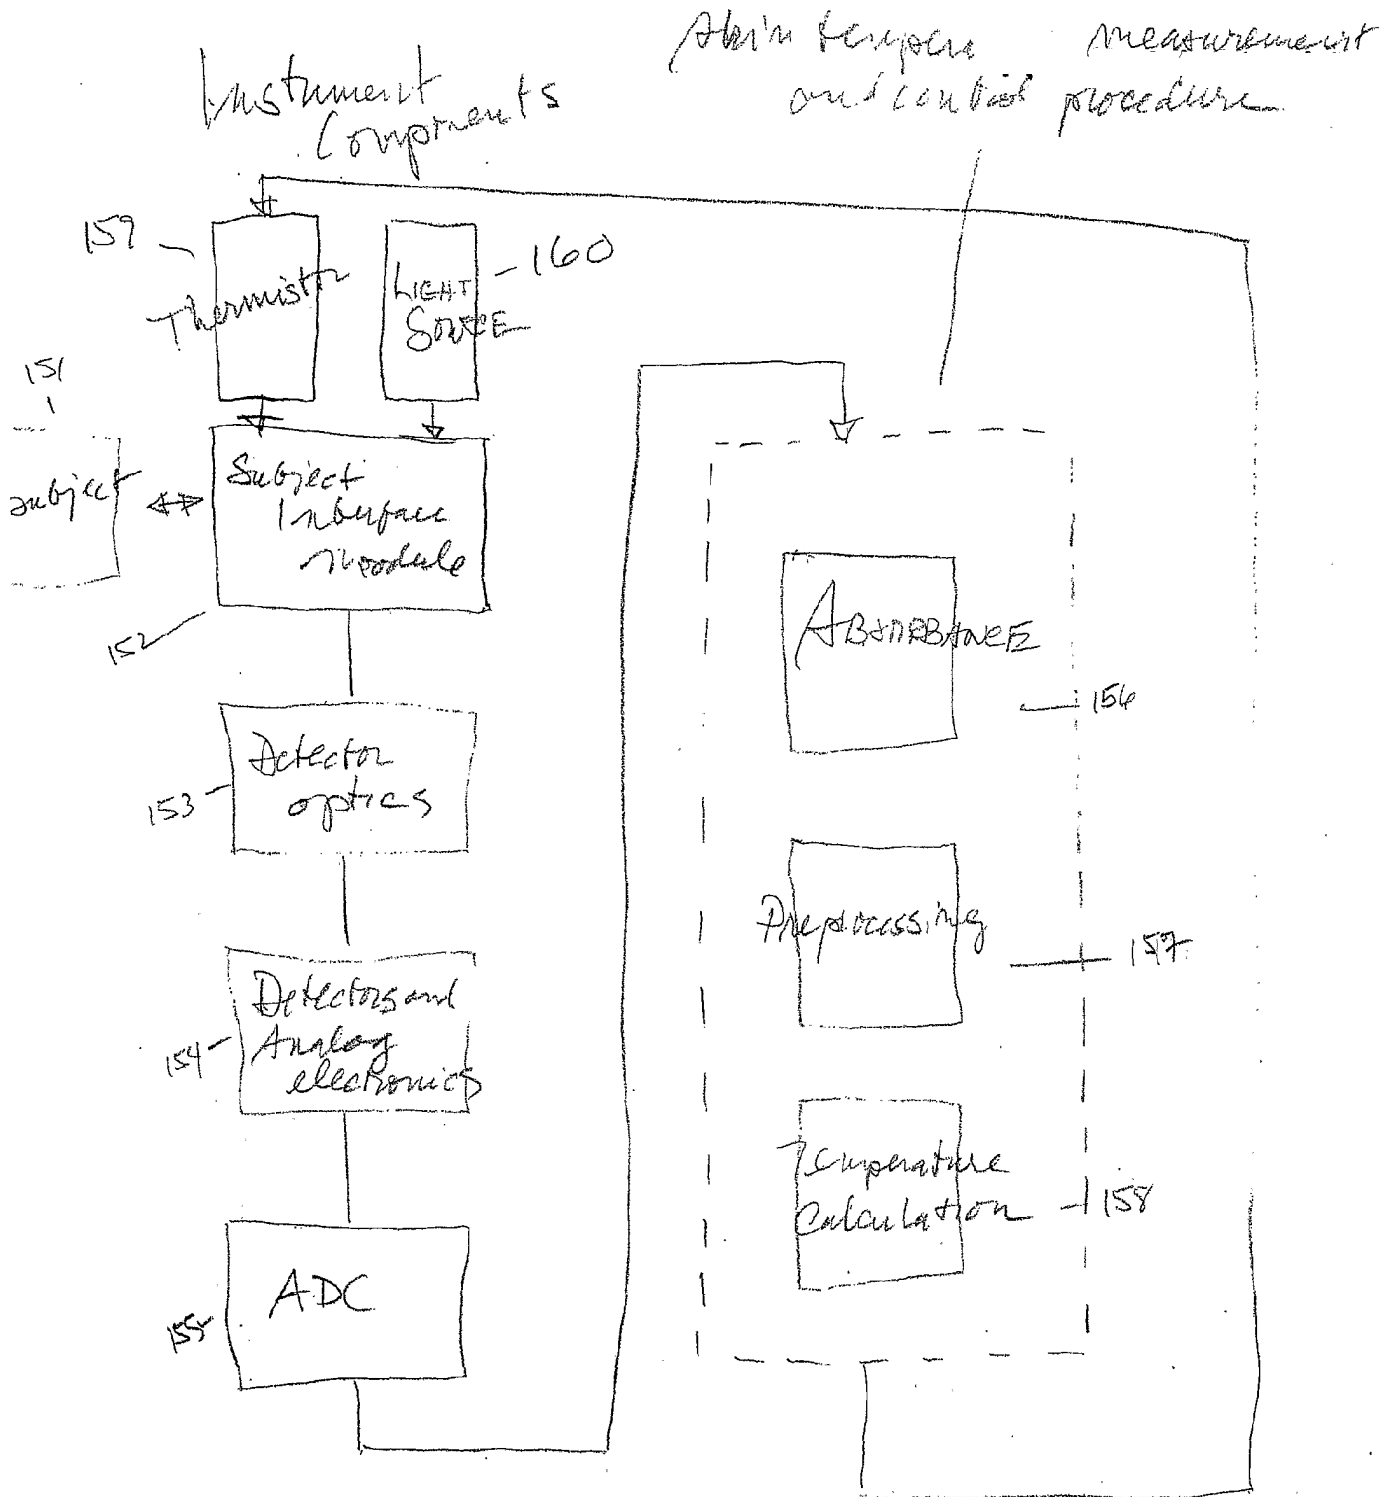 Instument
Components
skin tempera measurement
and control procedure
159
Thermistor
LIGHT
SOURCE
160
151
subject
Subject
Interface
module
152
Detector
optics
153
Detectors and
Analog
electronics
154
ADC
155
ABSORBANCE
156
Preprocessing
157
Temperature
Calculation
158